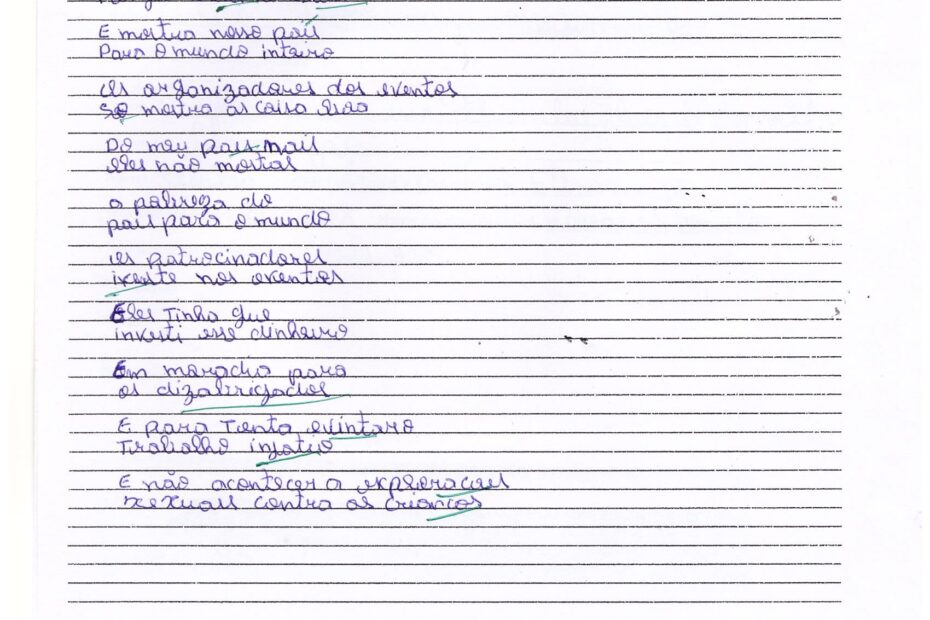 E mostra noso país
Para o mundo inteiro
Os organizadores dos eventos
So mostra as coisa boa
Do meu pais mais
eles não mostras
a pobreza do
pais para o mundo
Os patrocinadores
ivente nos eventos
Eles Tinha que
investi ese dinheiro
Em moradia para
os dizabrigados
E para Tenta evintaro
Trabalho infatio
E não acontecer a exploracoes
sexuais contra as criancas